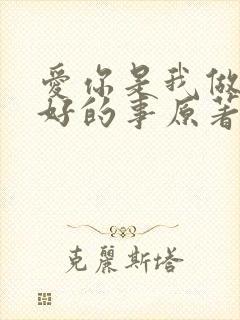 愛你是我做
好的事原著
克麗斯塔